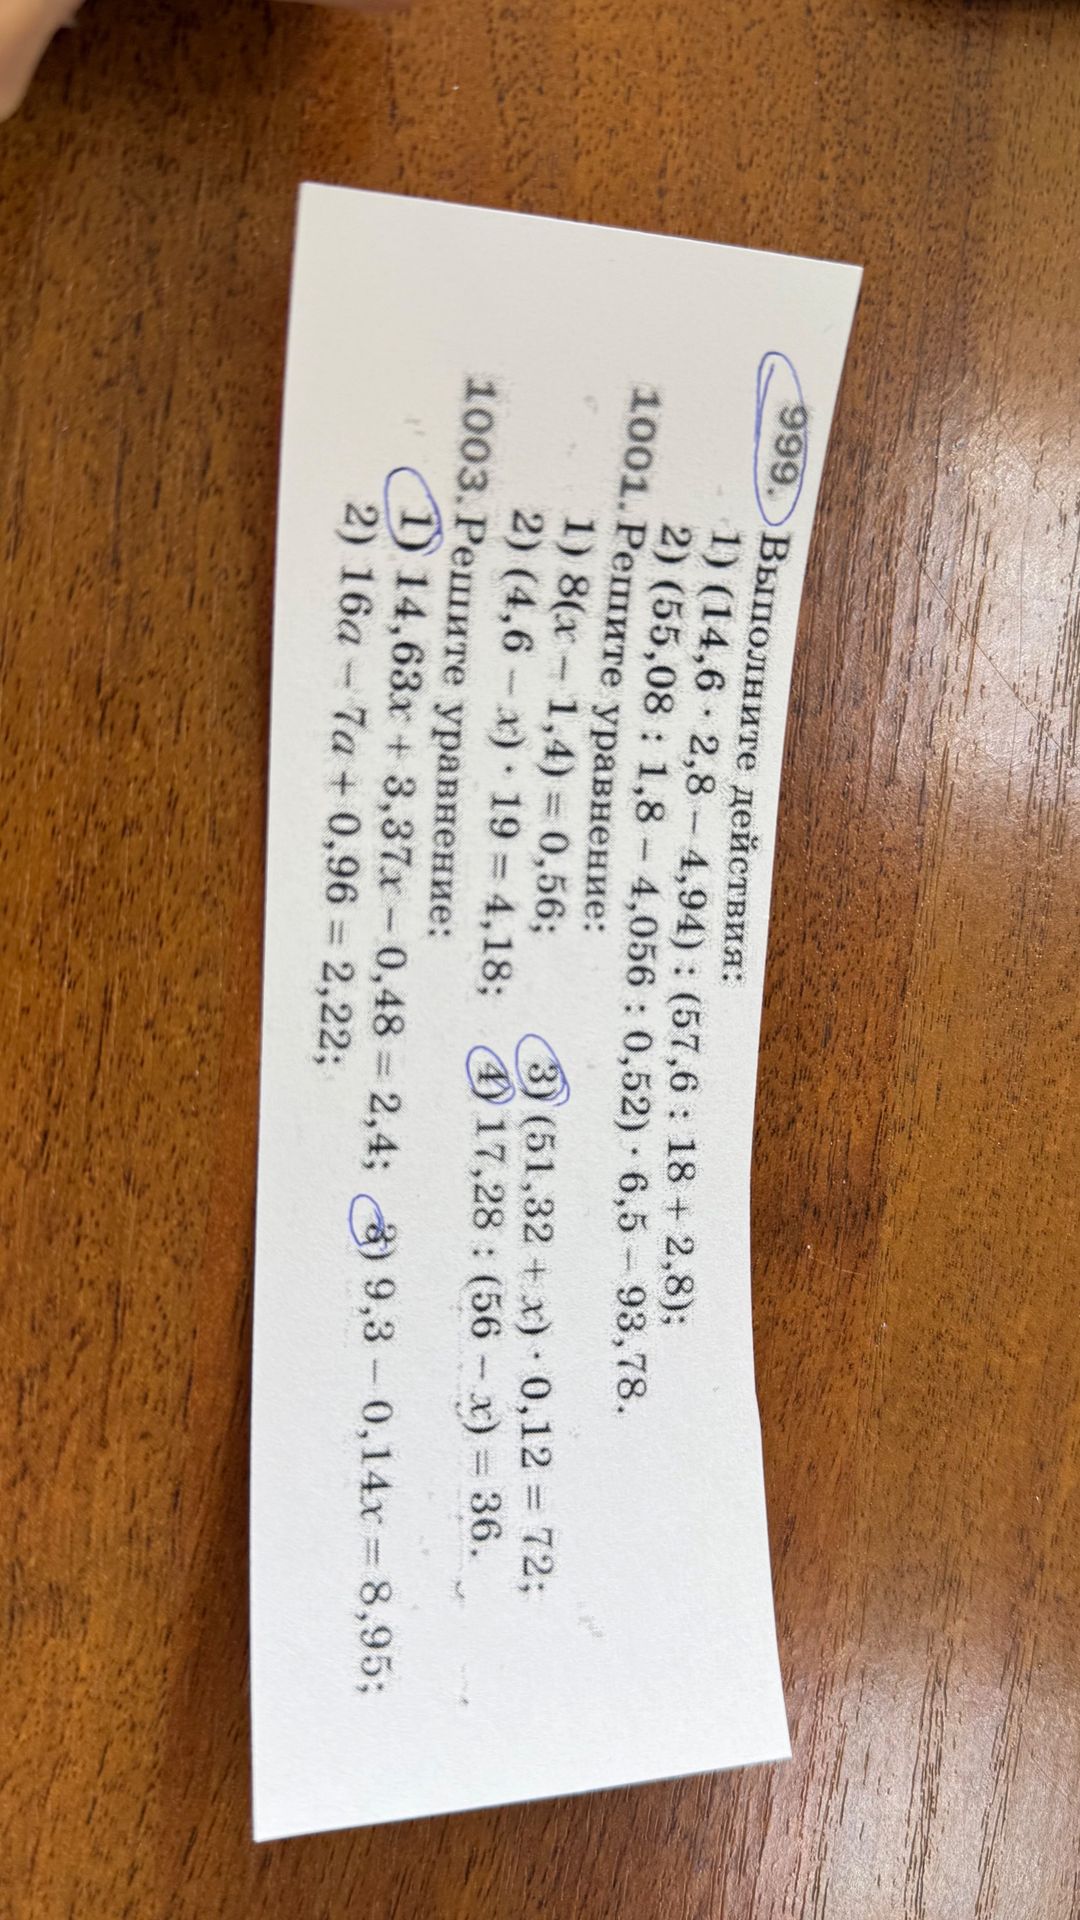 999. Выполните действия:
1) (14,6 · 2,8 – 4,94) : (57,6 : 18 + 2,8);
2) (55,08 : 1,8 – 4,056 : 0,52) · 6,5 – 93,78.
1001. Решите уравнение:
1) 8(x – 1,4) = 0,56; 3) (51,32 + x) · 0,12 = 72;
2) (4,6 – x) · 19 = 4,18; 4) 17,28 : (56 – x) = 36.
1003. Решите уравнение:
1) 14,63x + 3,37x – 0,48 = 2,4; 3) 9,3 – 0,14x = 8,95;
2) 16a – 7a + 0,96 = 2,22;